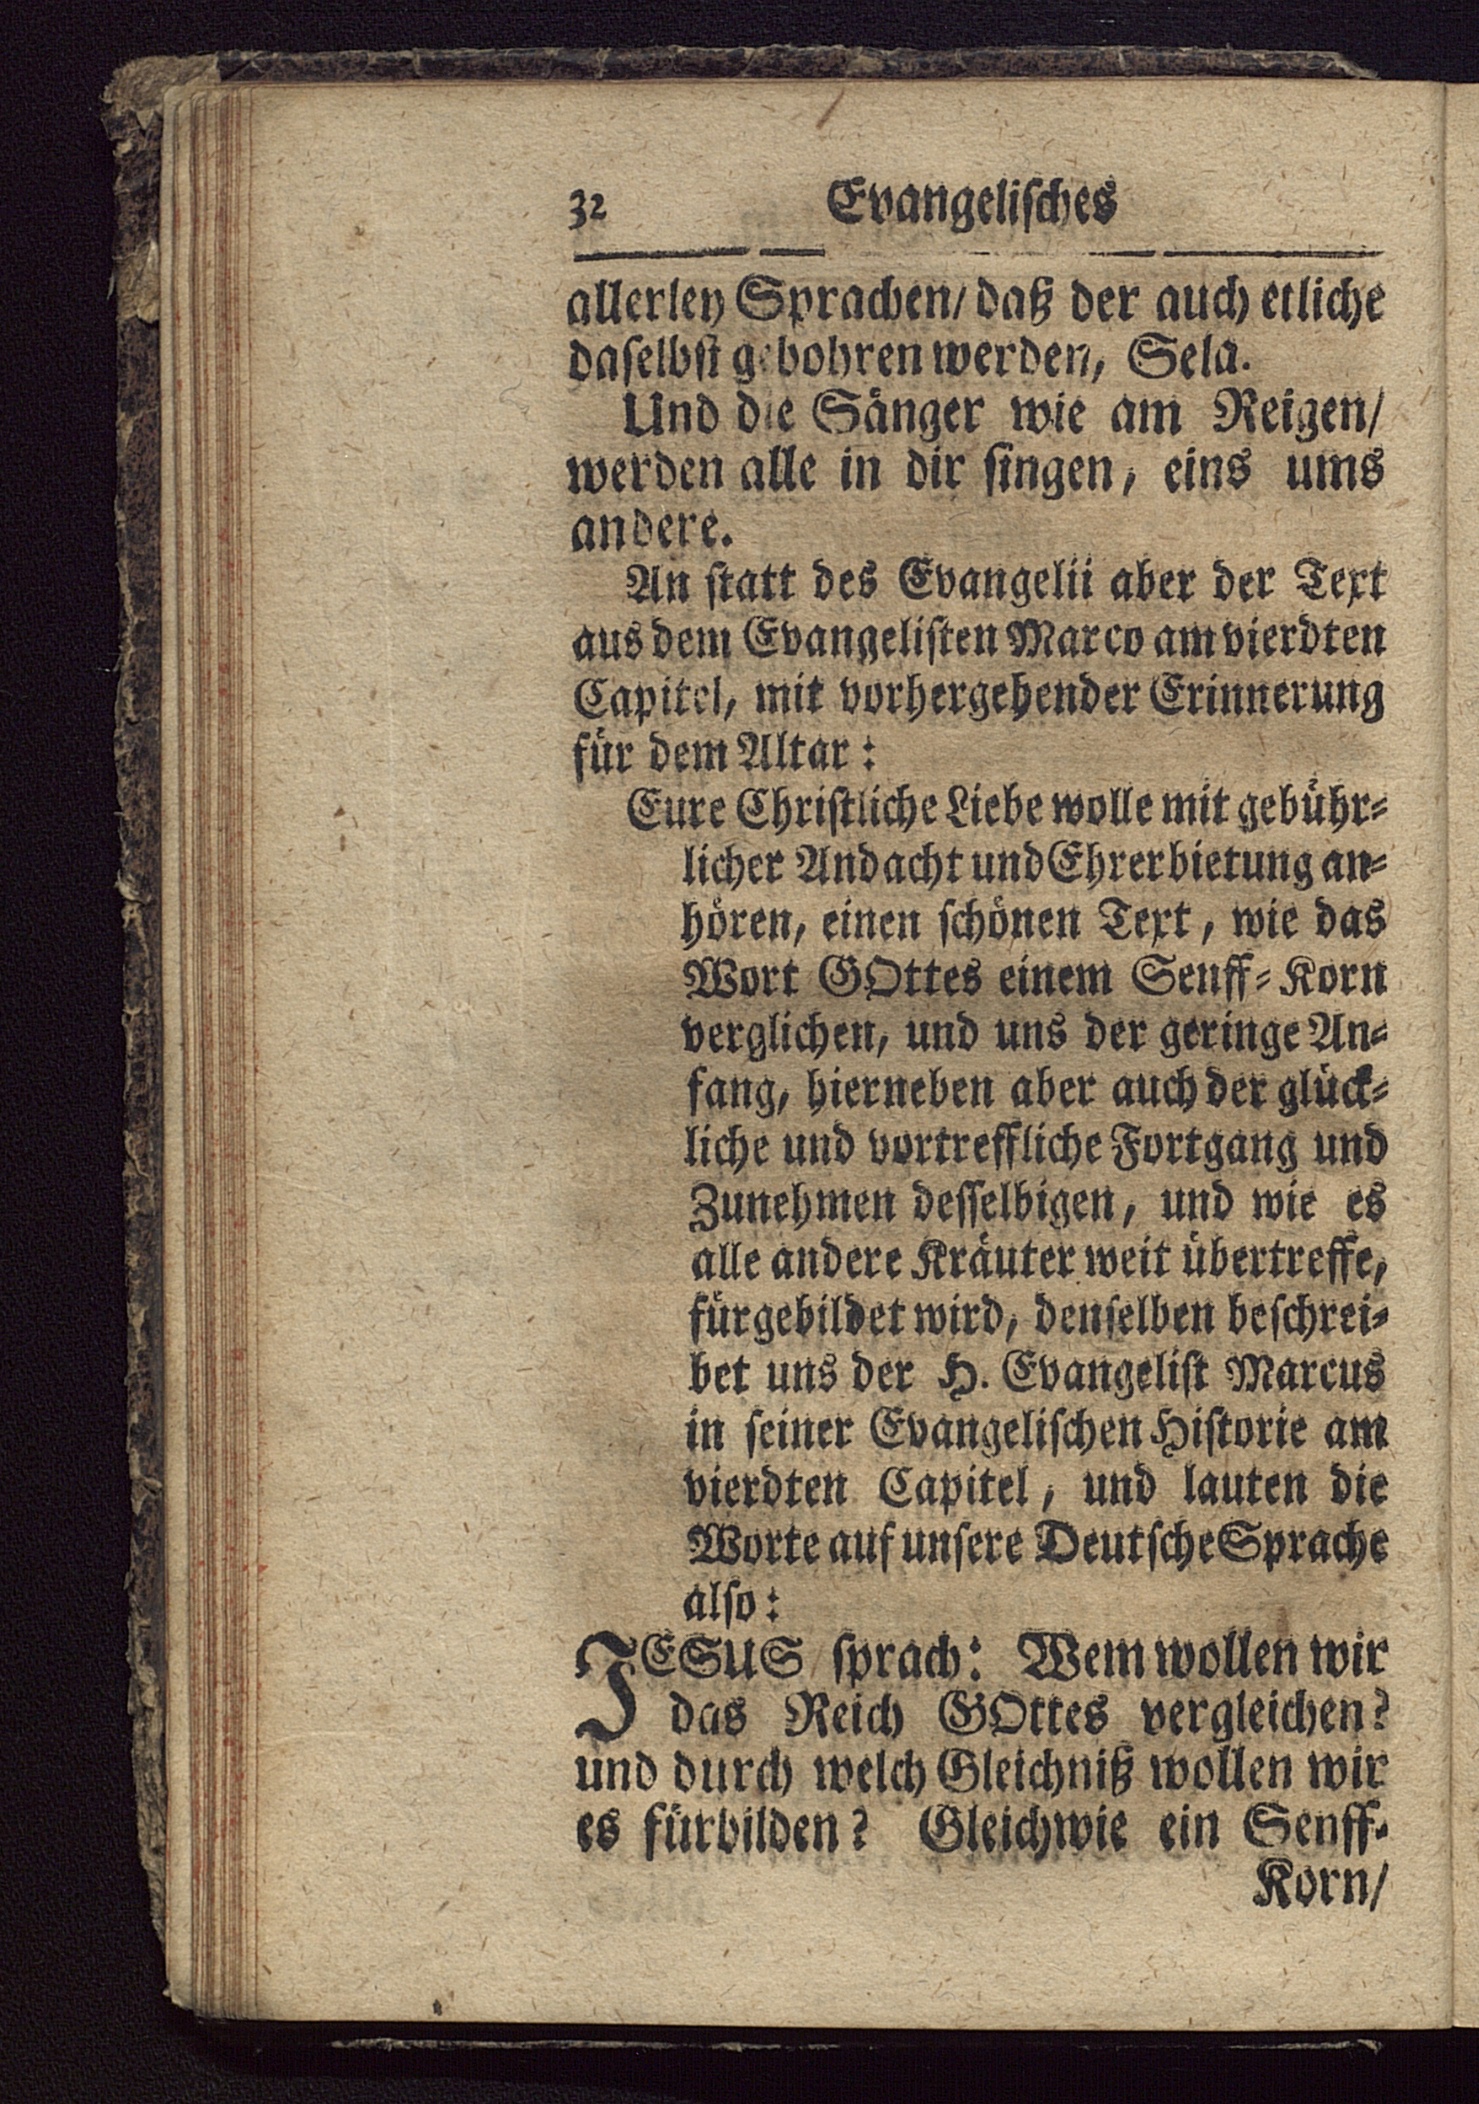 32 Evangeliſches
allerley Sprachen/ daß der auch etliche
daſelbſt gebohren werden, Sela.
Und die Sänger wie am Reigen/
werden alle in dir ſingen, eins ums
andere.
An ſtatt des Evangelii aber der Text
aus dem Evangeliſten Marco am vierdten
Capitel, mit vorhergehender Erinnerung
für dem Altar:
Eure Chriſtliche Liebe wolle mit gebühr-
licher Andacht und Ehrerbietung an-
hören, einen ſchönen Text, wie das
Wort GOttes einem Senff-Korn
verglichen, und uns der geringe An-
fang, hierneben aber auch der glück-
liche und vortreffliche Fortgang und
Zunehmen deſſelbigen, und wie es
alle andere Kräuter weit übertreffe,
fürgebildet wird, denſelben beſchrei-
bet uns der H. Evangeliſt Marcus
in ſeiner Evangeliſchen Hiſtorie am
vierdten Capitel, und lauten die
Worte auf unſere Deutſche Sprache
alſo:
JESUS ſprach: Wem wollen wir
das Reich GOttes vergleichen?
und durch welch Gleichniß wollen wir
es fürbilden? Gleichwie ein Senff-
Korn/